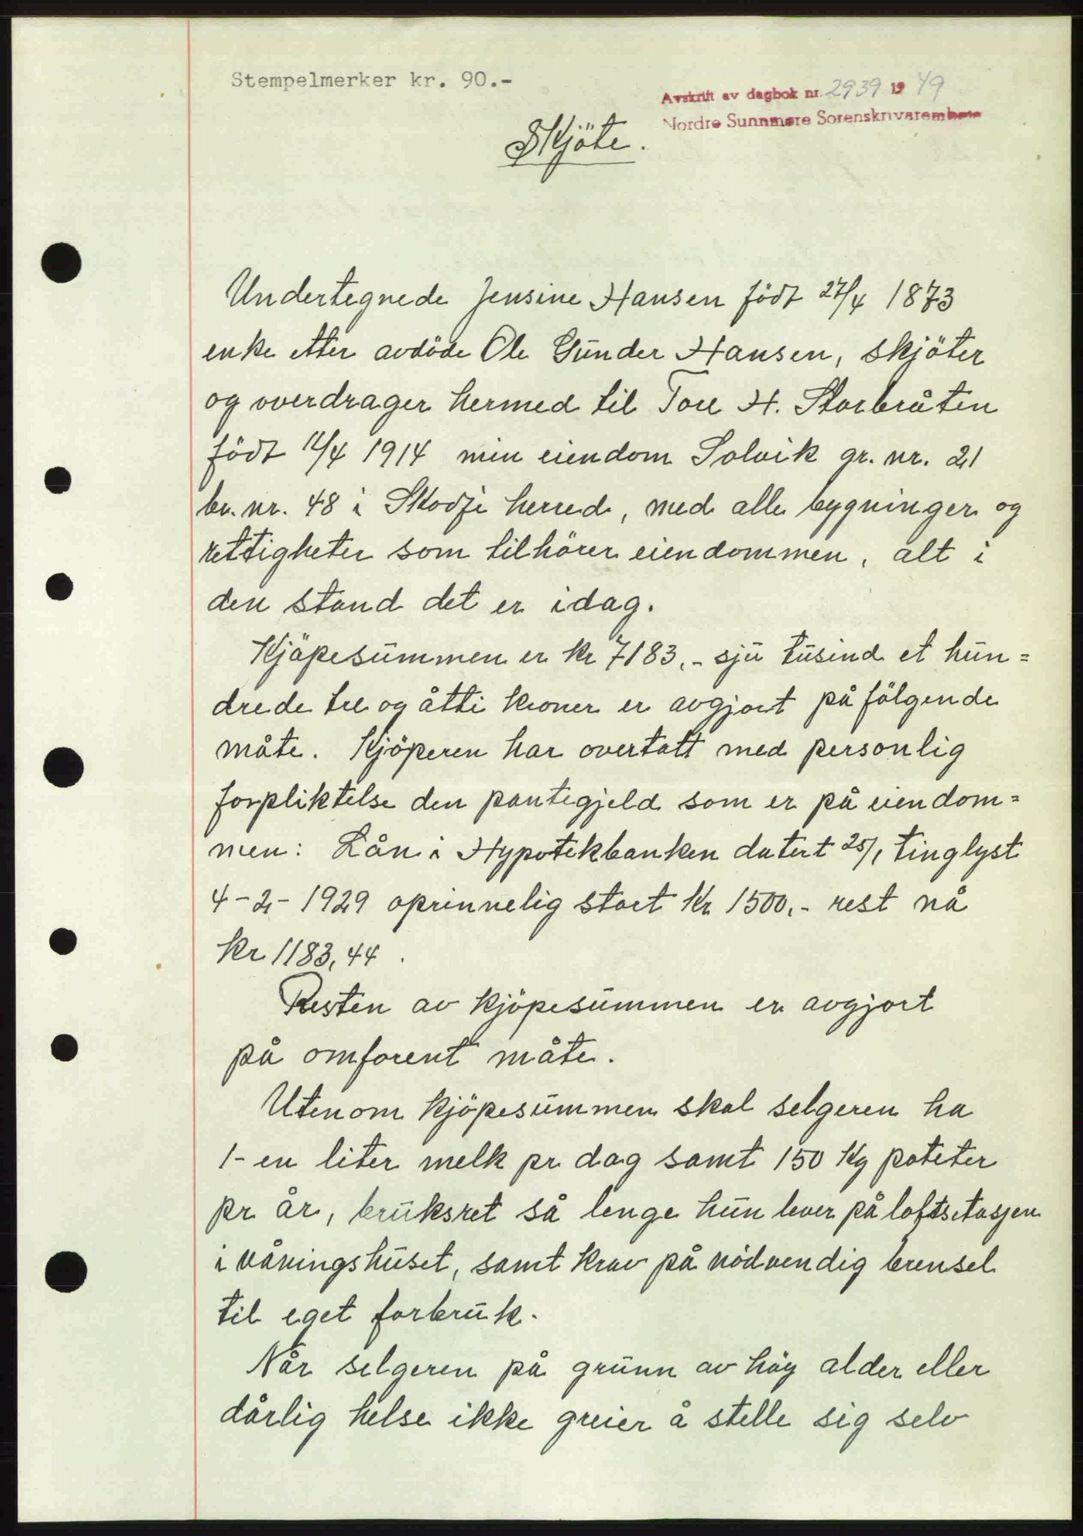 Stempelmerker kr. 90.-
Avskrift av dagbok nr. 2939 1949
Nordre Sunnmøre Sorenskriverembete
Skjöte.
Undertegnede Jensine Hansen födt 27/4 1873
enke etter avdöde Ole Gunder Hansen, skjöter
og overdrager hermed til Tore H. Storbråten
födt 12/4 1914 min eiendom Solvik gr. nr. 21
br. nr. 48 i Skodje herred, med alle bygninger og
rettigheter som tilhörer eiendommen, alt i
den stand det er idag.
Kjöpesummen er kr 7183,- sju tusind et hun=
drede tre og åtti kroner er avgjort på fölgende
måte. Kjöperen har overtatt med personlig
forpliktelse den pantegjeld som er på eiendom=
men: Lån i Hypotekbanken datert 25/1 tinglyst
4-2-1929 oprinnelig stort kr 1500,- rest nå
kr 1183,44.
Resten av kjöpesummen er avgjort
på omforent måte.
Utenom kjöpesummen skal selgeren ha
1- en liter melk pr dag samt 150 Kg poteter
pr år, bruksret så lenge hun lever på loftsetasjen
i våningshuset, samt krav på nödvendig brensel
til eget forbruk.
Når selgeren på grunn av höy alder eller
dårlig helse ikke greier å stelle sig selv